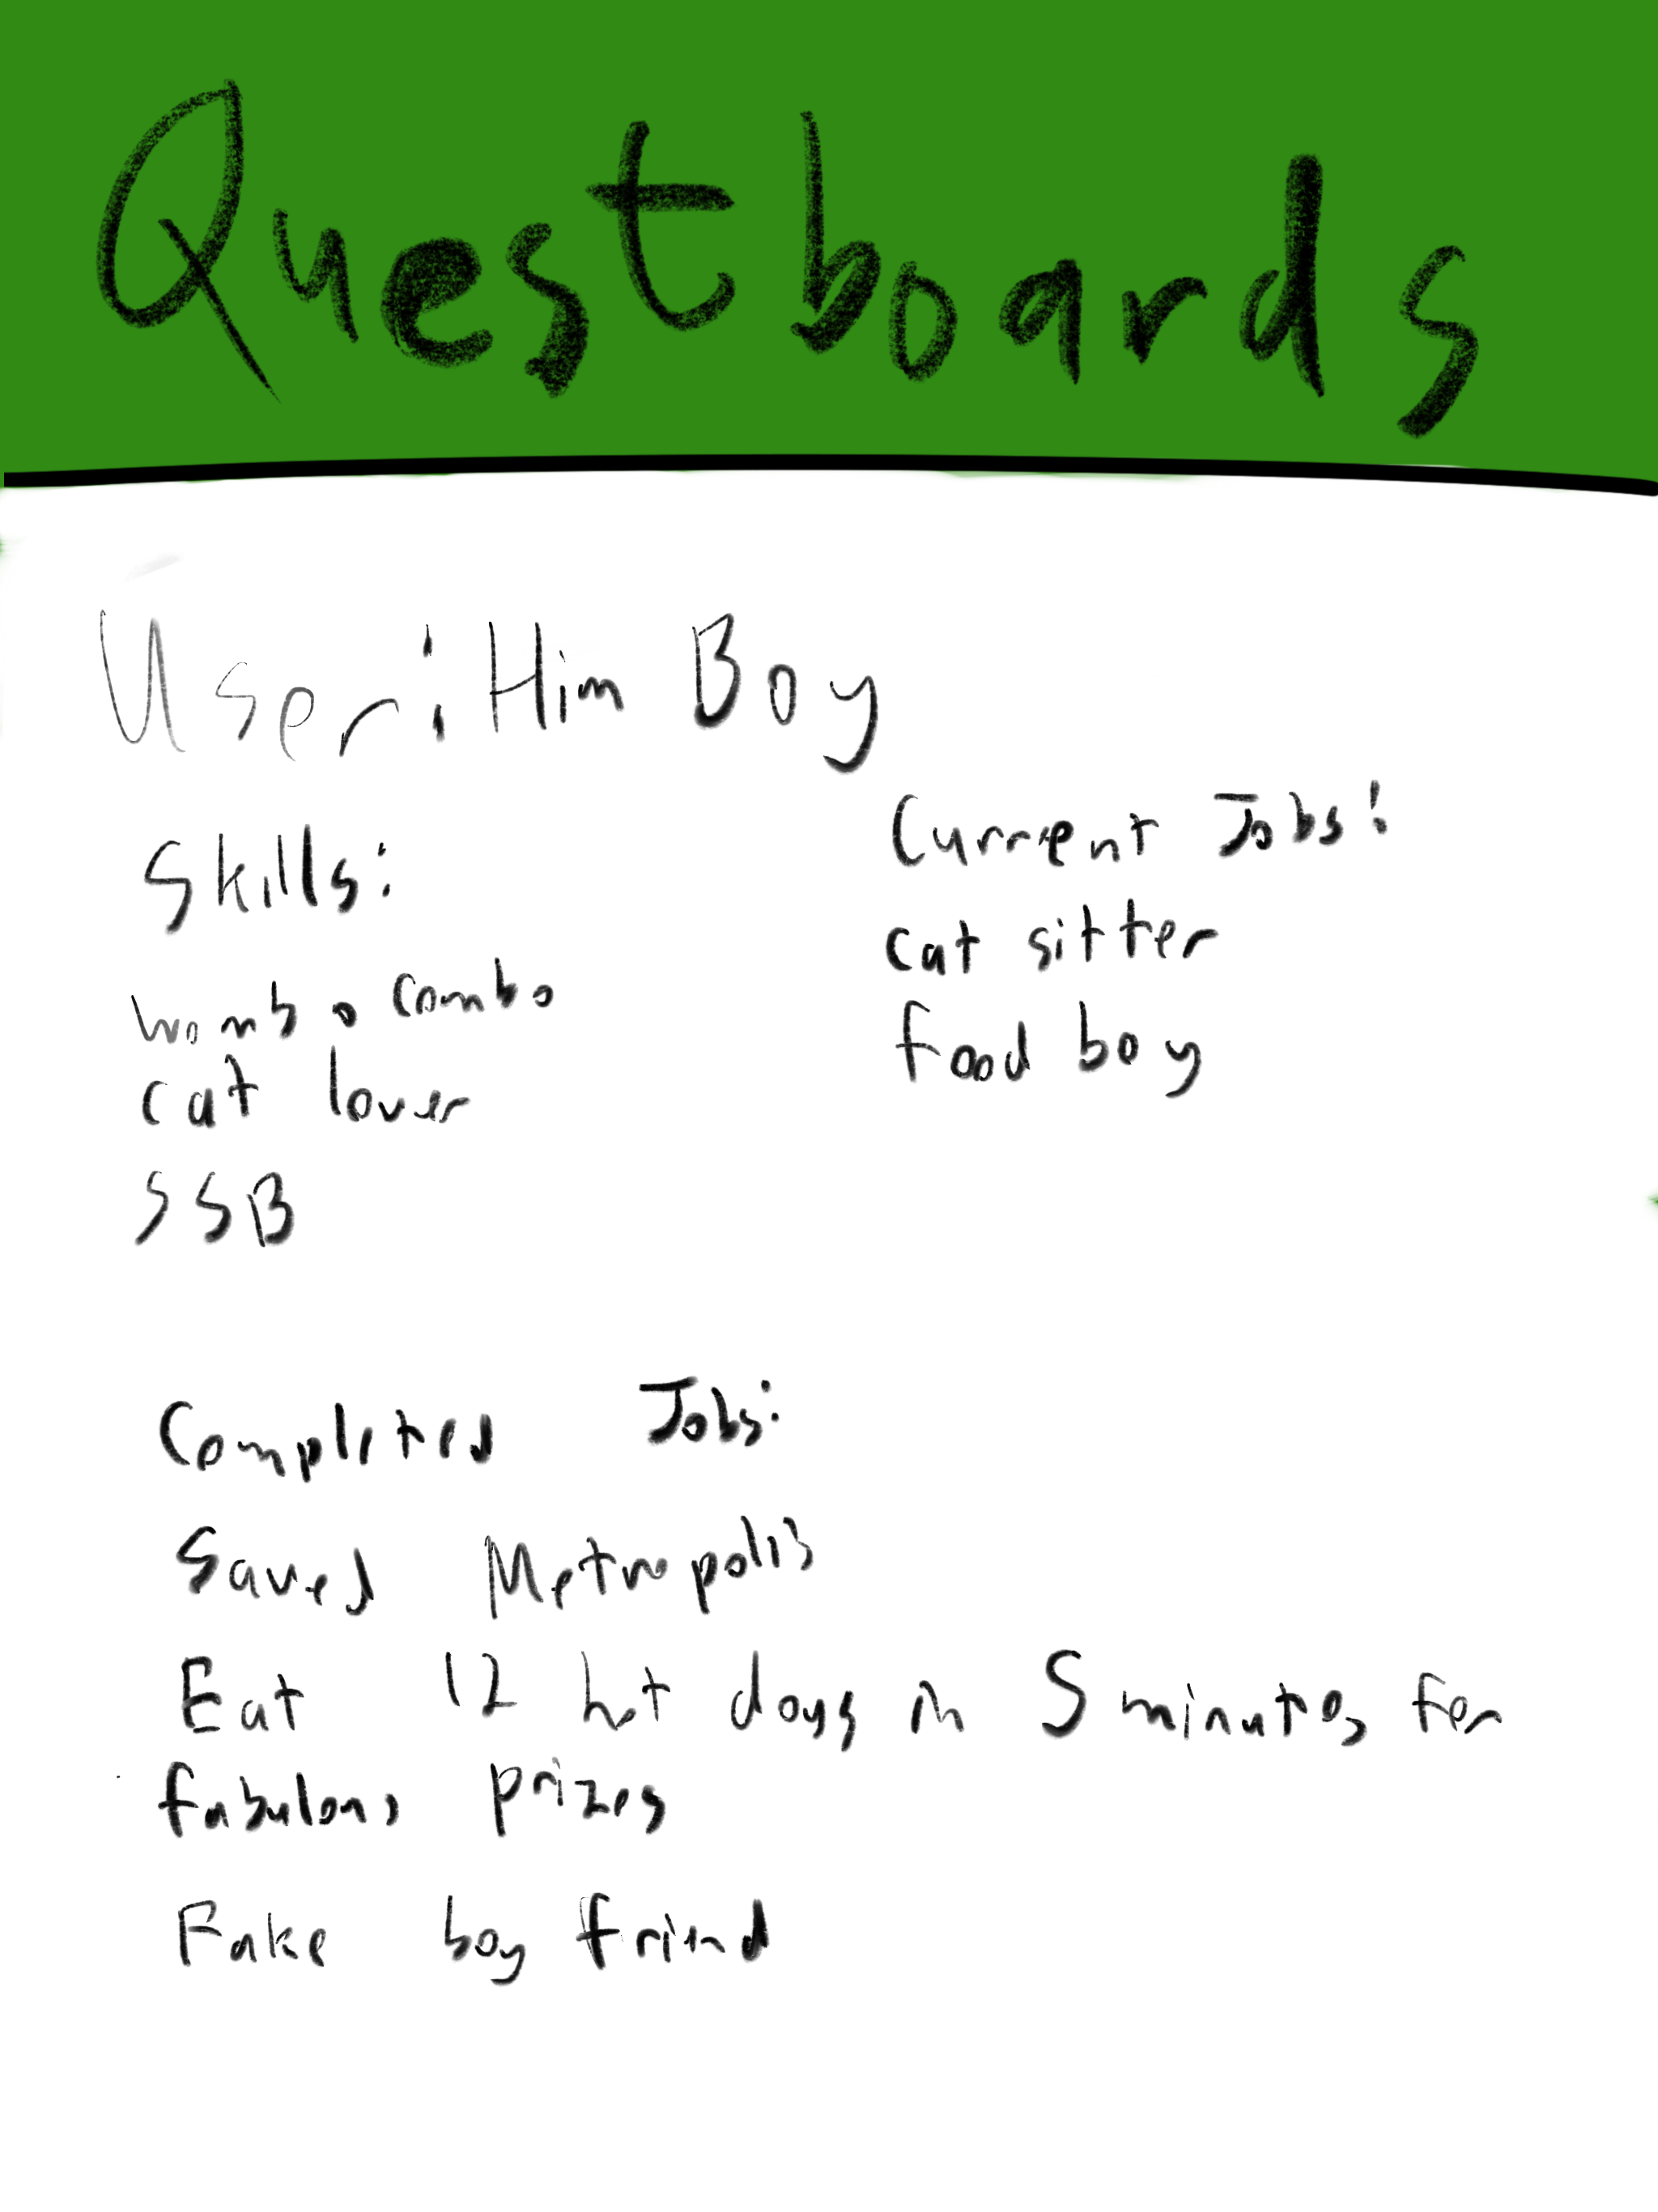 Questboards
User: Him Boy
Skills:
wombo combo
cat lover
SSB
Current Jobs:
cat sitter
food boy
Completed Jobs:
Saved Metropolis
Eat 12 hot dogs in 5 minutes for
fabulous prizes
Fake boy friend